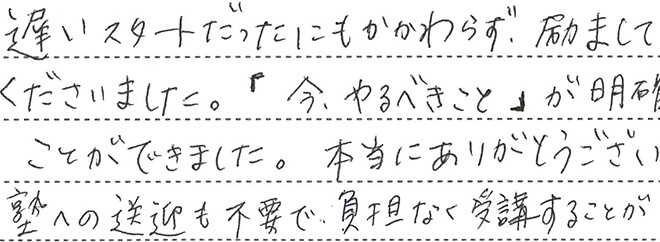 遅いスタートだったにもかかわらず、励まして
くださいました。「今、やるべきこと」が明確
ことができました。本当にありがとうござい
塾への送迎も不要で、負担なく受講することが